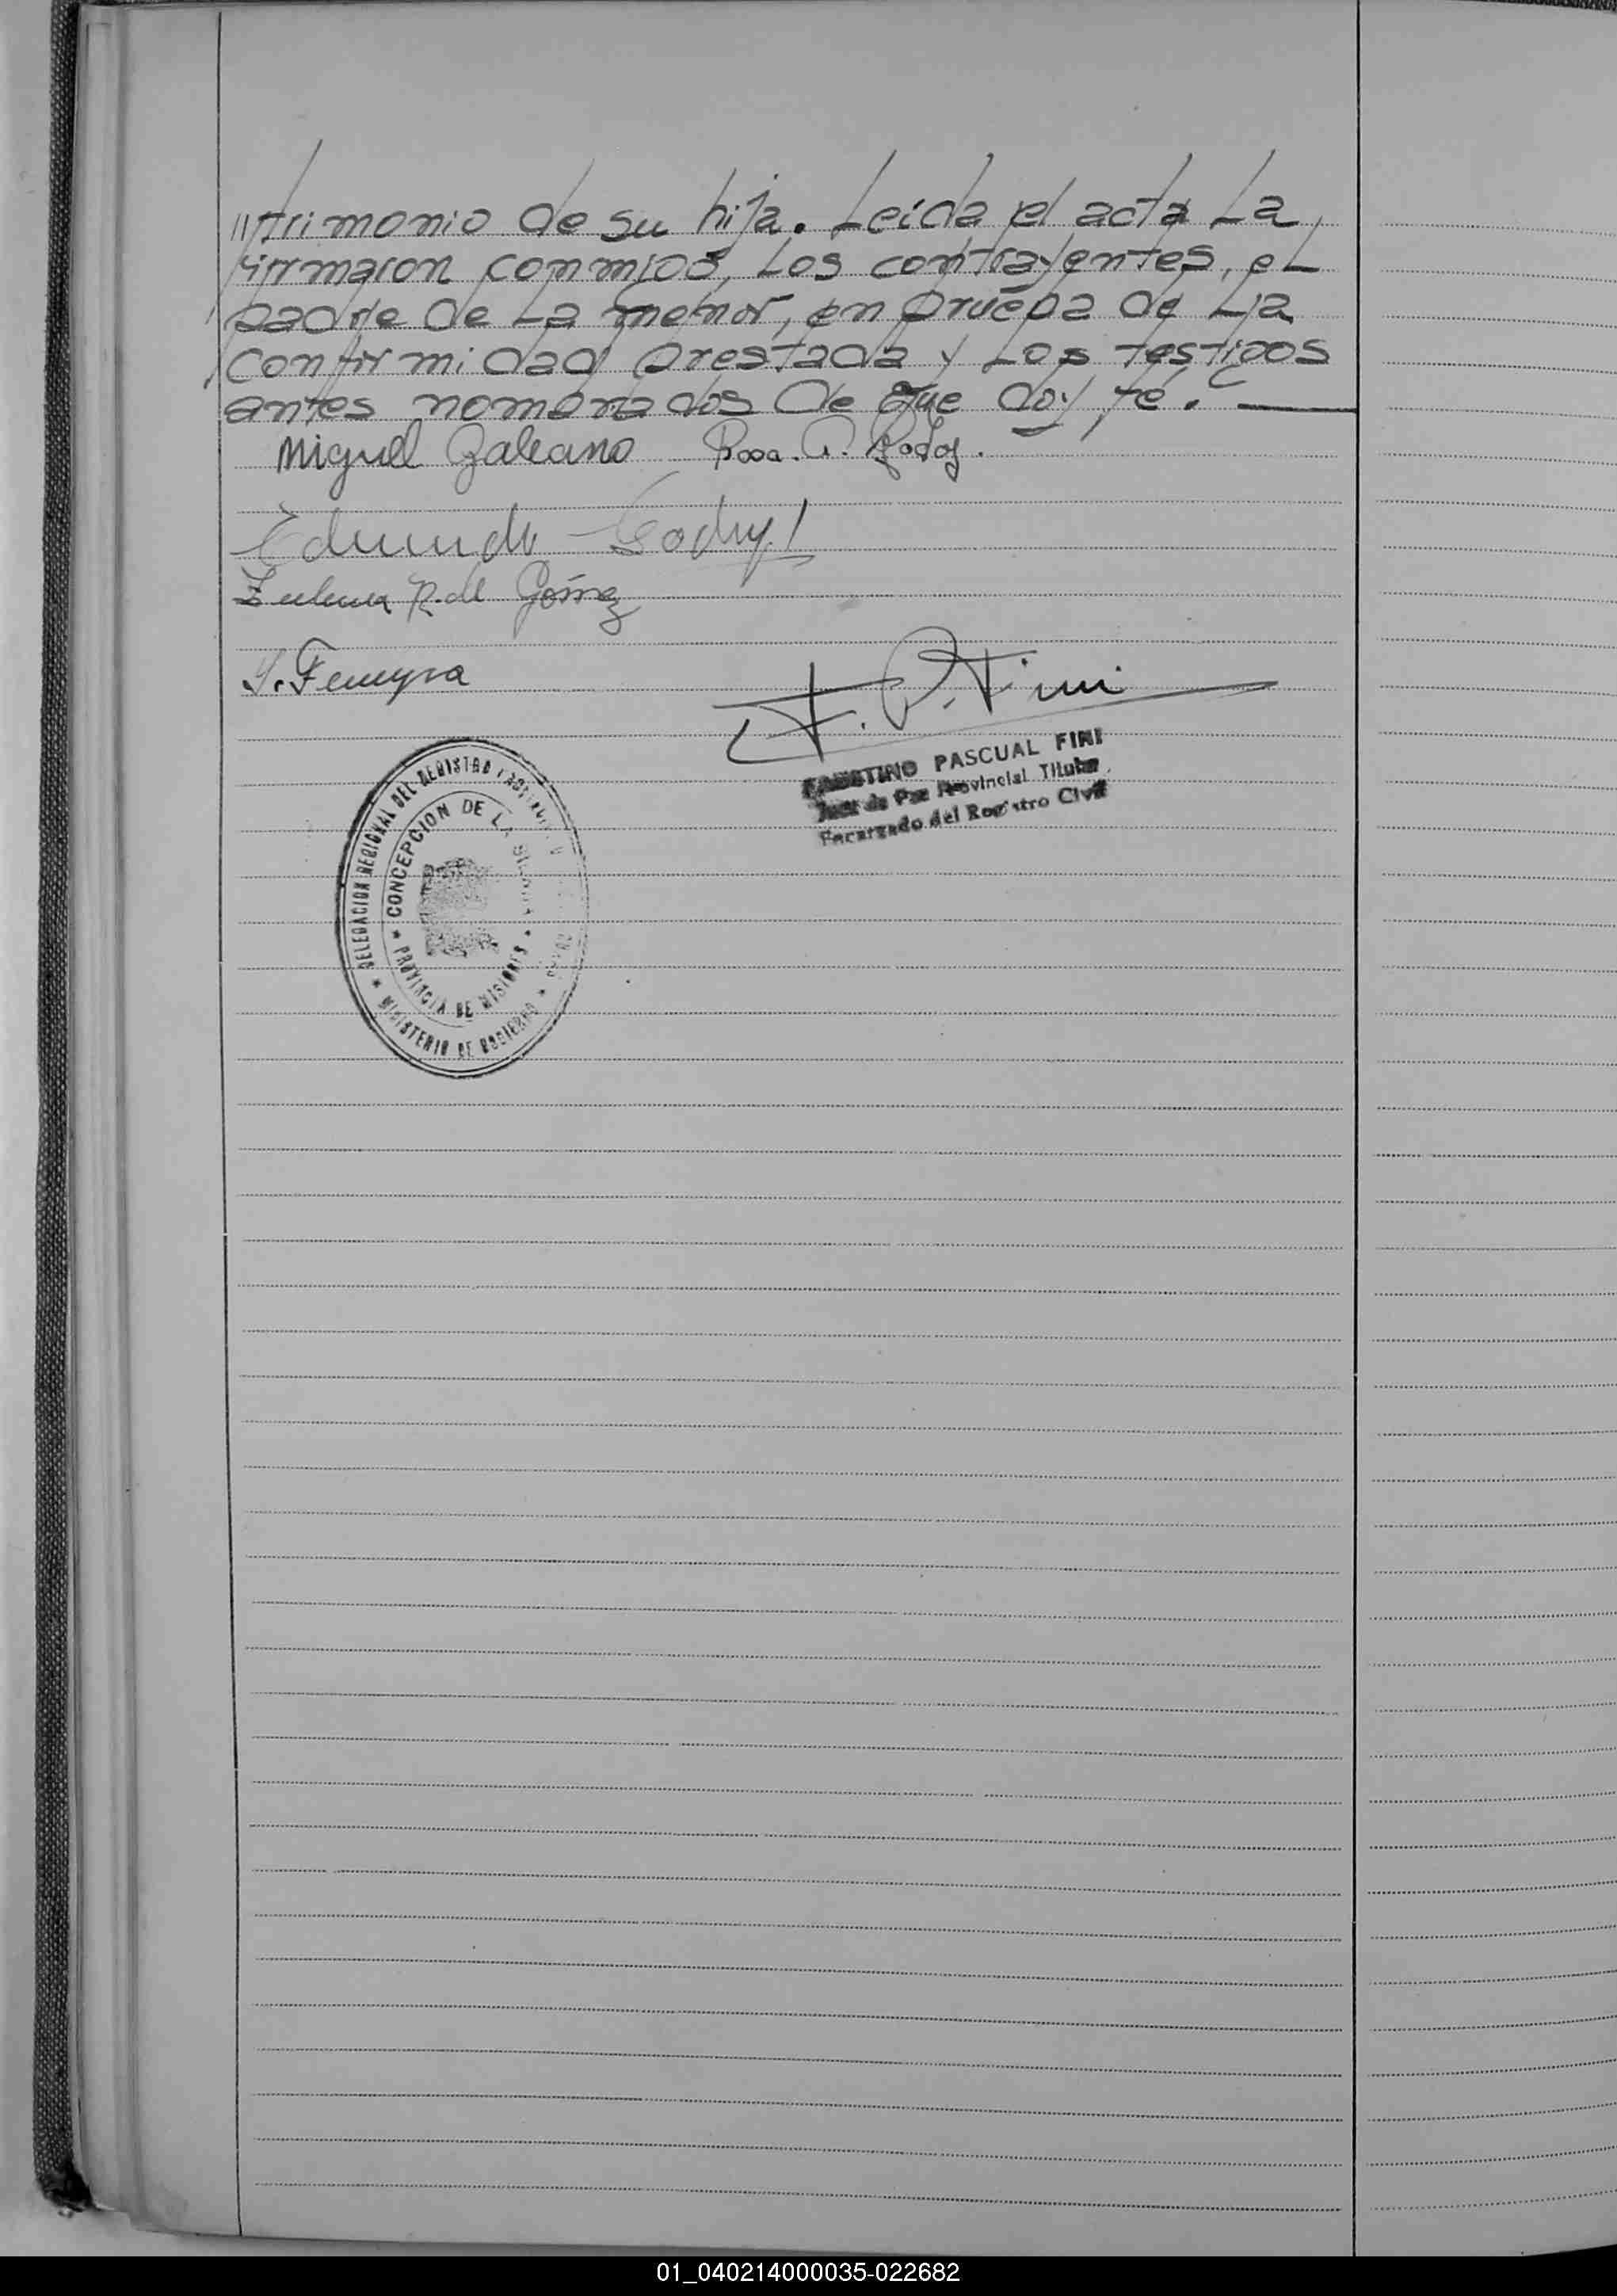 "trimonio de su hija. Leida el acta La
firmaron conmigo, Los contrayentes, el
padre de La menor, en prueba de La
conformidad prestada y Los testigos
antes nombrados de que doy fé.
Miguel Galeano Rosa. A. Godoy.
Edmundo Godoy
R. de Gómez
S. Ferreyra
F. P. Fini
FAUSTINO PASCUAL FINI
Juez de Paz Provincial Titular
Encargado del Registro Civil
DELEGACION REGIONAL DEL REGISTRO PROVINCIAL
CONCEPCION DE LA SIERRA
PROVINCIA DE MISIONES
MINISTERIO DE GOBIERNO
01_040214000035-022682